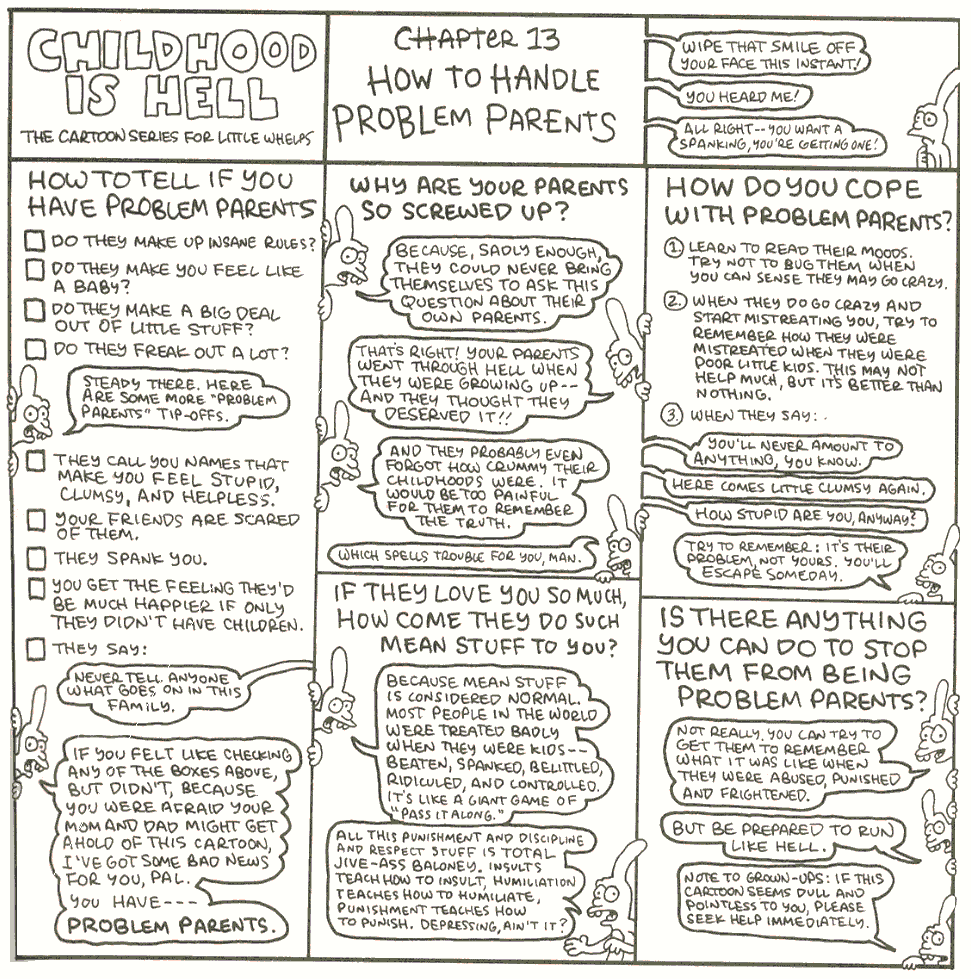 CHILDHOOD
IS HELL
THE CARTOON SERIES FOR LITTLE WHELPS
CHAPTER 13
HOW TO HANDLE
PROBLEM PARENTS
WIPE THAT SMILE OFF
YOUR FACE THIS INSTANT!
YOU HEARD ME!
ALL RIGHT-- YOU WANT A
SPANKING, YOU'RE GETTING ONE!
HOW TO TELL IF YOU
HAVE PROBLEM PARENTS
DO THEY MAKE UP INSANE RULES?
DO THEY MAKE YOU FEEL LIKE
A BABY?
DO THEY MAKE A BIG DEAL
OUT OF LITTLE STUFF?
DO THEY FREAK OUT A LOT?
STEADY THERE. HERE
ARE SOME MORE "PROBLEM
PARENTS" TIP-OFFS.
THEY CALL YOU NAMES THAT
MAKE YOU FEEL STUPID,
CLUMSY, AND HELPLESS.
YOUR FRIENDS ARE SCARED
OF THEM.
THEY SPANK YOU.
YOU GET THE FEELING THEY'D
BE MUCH HAPPIER IF ONLY
THEY DIDN'T HAVE CHILDREN.
THEY SAY:
NEVER TELL ANYONE
WHAT GOES ON IN THIS
FAMILY.
IF YOU FELT LIKE CHECKING
ANY OF THE BOXES ABOVE,
BUT DIDN'T, BECAUSE
YOU WERE AFRAID YOUR
MOM AND DAD MIGHT GET
AHOLD OF THIS CARTOON,
I'VE GOT SOME BAD NEWS
FOR YOU, PAL.
YOU HAVE---
PROBLEM PARENTS.
WHY ARE YOUR PARENTS
SO SCREWED UP?
BECAUSE, SADLY ENOUGH,
THEY COULD NEVER BRING
THEMSELVES TO ASK THIS
QUESTION ABOUT THEIR
OWN PARENTS.
THAT'S RIGHT! YOUR PARENTS
WENT THROUGH HELL WHEN
THEY WERE GROWING UP--
AND THEY THOUGHT THEY
DESERVED IT!!
AND THEY PROBABLY EVEN
FORGOT HOW CRUMMY THEIR
CHILDHOODS WERE. IT
WOULD BE TOO PAINFUL
FOR THEM TO REMEMBER
THE TRUTH.
WHICH SPELLS TROUBLE FOR YOU, MAN.
IF THEY LOVE YOU SO MUCH,
HOW COME THEY DO SUCH
MEAN STUFF TO YOU?
BECAUSE MEAN STUFF
IS CONSIDERED NORMAL.
MOST PEOPLE IN THE WORLD
WERE TREATED BADLY
WHEN THEY WERE KIDS--
BEATEN, SPANKED, BELITTLED,
RIDICULED, AND CONTROLLED.
IT'S LIKE A GIANT GAME OF
"PASS IT ALONG."
ALL THIS PUNISHMENT AND DISCIPLINE
AND RESPECT STUFF IS TOTAL
JIVE-ASS BALONEY. INSULTS
TEACH HOW TO INSULT, HUMILIATION
TEACHES HOW TO HUMILIATE,
PUNISHMENT TEACHES HOW
TO PUNISH. DEPRESSING, AIN'T IT?
HOW DO YOU COPE
WITH PROBLEM PARENTS?
1. LEARN TO READ THEIR MOODS.
TRY NOT TO BUG THEM WHEN
YOU CAN SENSE THEY MAY GO CRAZY.
2. WHEN THEY DO GO CRAZY AND
START MISTREATING YOU, TRY TO
REMEMBER HOW THEY WERE
MISTREATED WHEN THEY WERE
POOR LITTLE KIDS. THIS MAY NOT
HELP MUCH, BUT IT'S BETTER THAN
NOTHING.
3. WHEN THEY SAY:
YOU'LL NEVER AMOUNT TO
ANYTHING, YOU KNOW.
HERE COMES LITTLE CLUMSY AGAIN.
HOW STUPID ARE YOU, ANYWAY?
TRY TO REMEMBER: IT'S THEIR
PROBLEM, NOT YOURS. YOU'LL
ESCAPE SOMEDAY.
IS THERE ANYTHING
YOU CAN DO TO STOP
THEM FROM BEING
PROBLEM PARENTS?
NOT REALLY. YOU CAN TRY TO
GET THEM TO REMEMBER
WHAT IT WAS LIKE WHEN
THEY WERE ABUSED, PUNISHED
AND FRIGHTENED.
BUT BE PREPARED TO RUN
LIKE HELL.
NOTE TO GROWN-UPS: IF THIS
CARTOON SEEMS DULL AND
POINTLESS TO YOU, PLEASE
SEEK HELP IMMEDIATELY.